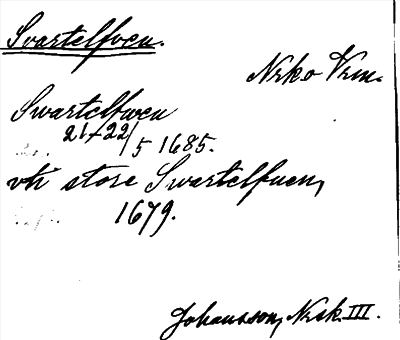 Svartelfven.
Nrko Vrm.
Swartelfwen
21-22/5 1685.
vti store Swartelfuen,
1679.
Johansson, Norsk. III.